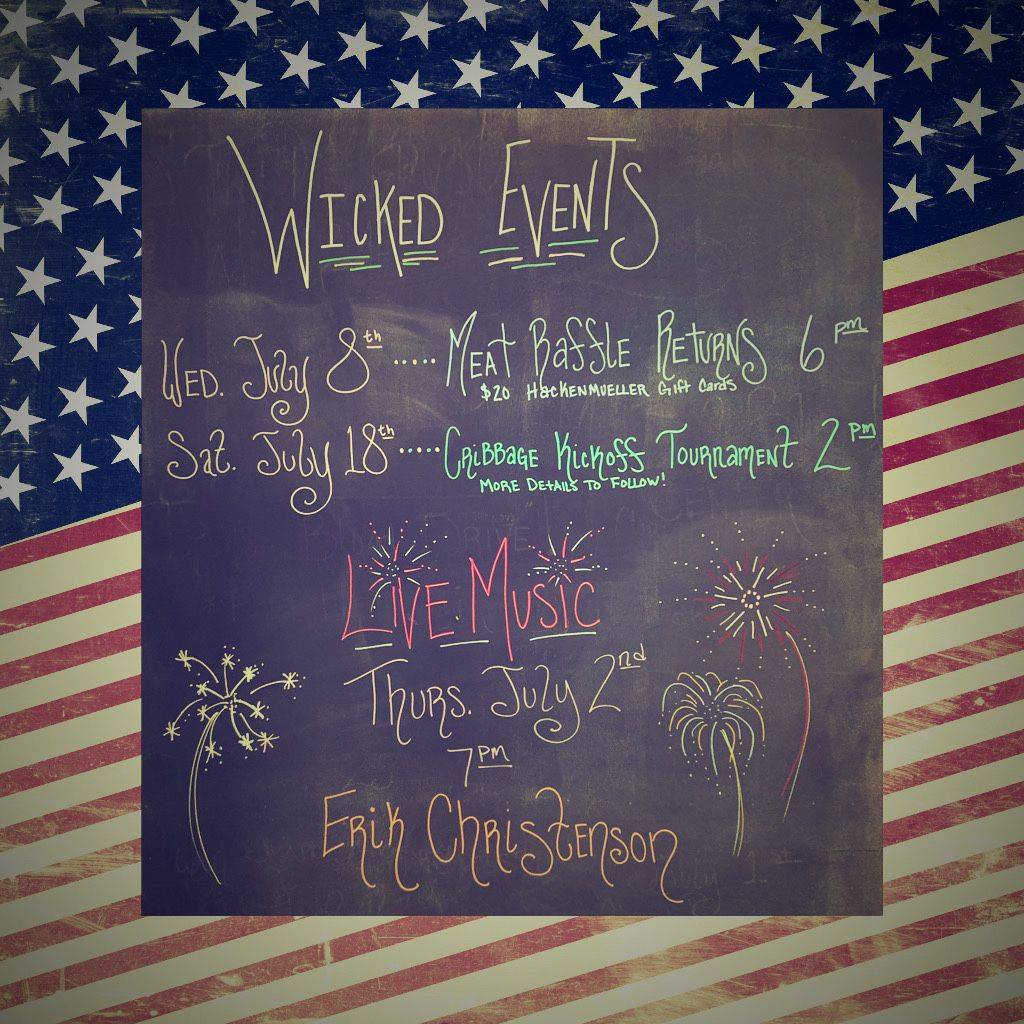 Wicked Events
Wed. July 8th ..... Meat Raffle Returns 6 pm
$20 Hackenmueller Gift Cards
Sat. July 18th ..... Cribbage Kickoff Tournament 2 pm
More Details To Follow!
Live Music
Thurs. July 2nd
7 pm
Erik Christenson